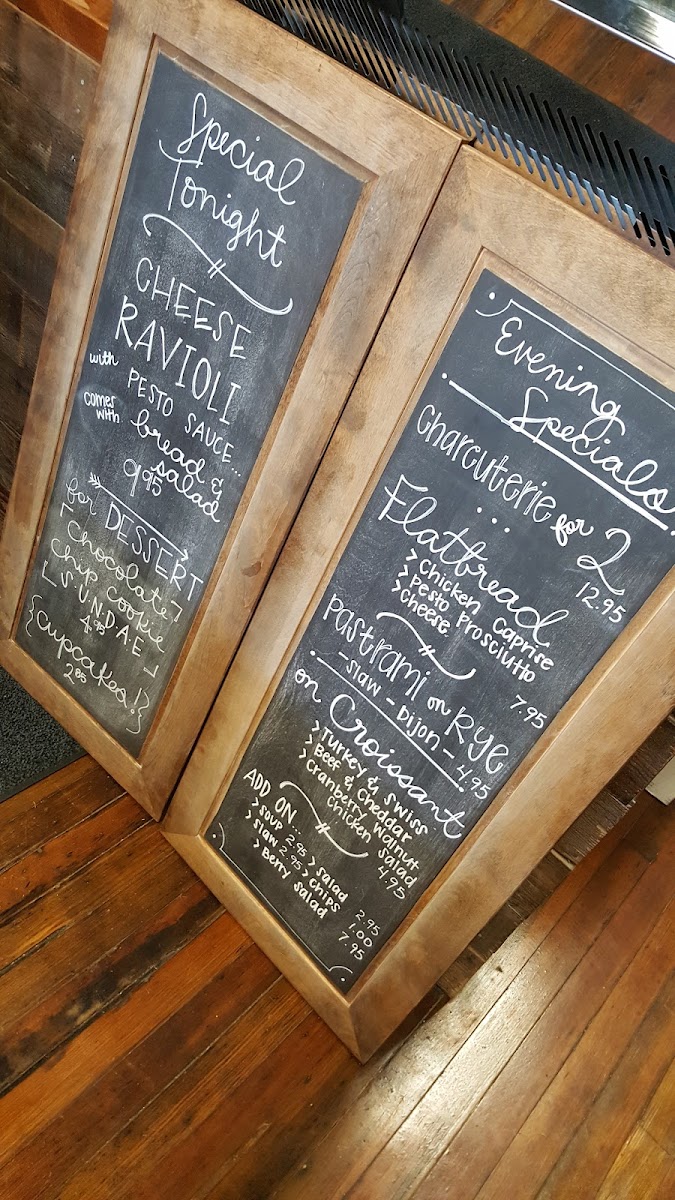 Special
Tonight
CHEESE
RAVIOLI
with PESTO SAUCE...
comes with bread &
salad
9.95
for DESSERT
chocolate
chip cookie
SUNDAE
4.95
{cupcakes!}
2.95
Evening
Specials
Charcuterie for 2
... 12.95
Flatbread
> Chicken Caprise
> Pesto Prosciutto
> Cheese 7.95
Pastrami on Rye
- Slaw - Dijon - 4.95
on Croissant
> Turkey & Swiss
> Beef & Cheddar
> Cranberry Walnut
Chicken Salad
4.95
ADD ON...
> Soup 2.95 > Salad 2.95
> Slaw 2.95 > Chips 1.00
> Berry Salad 7.95